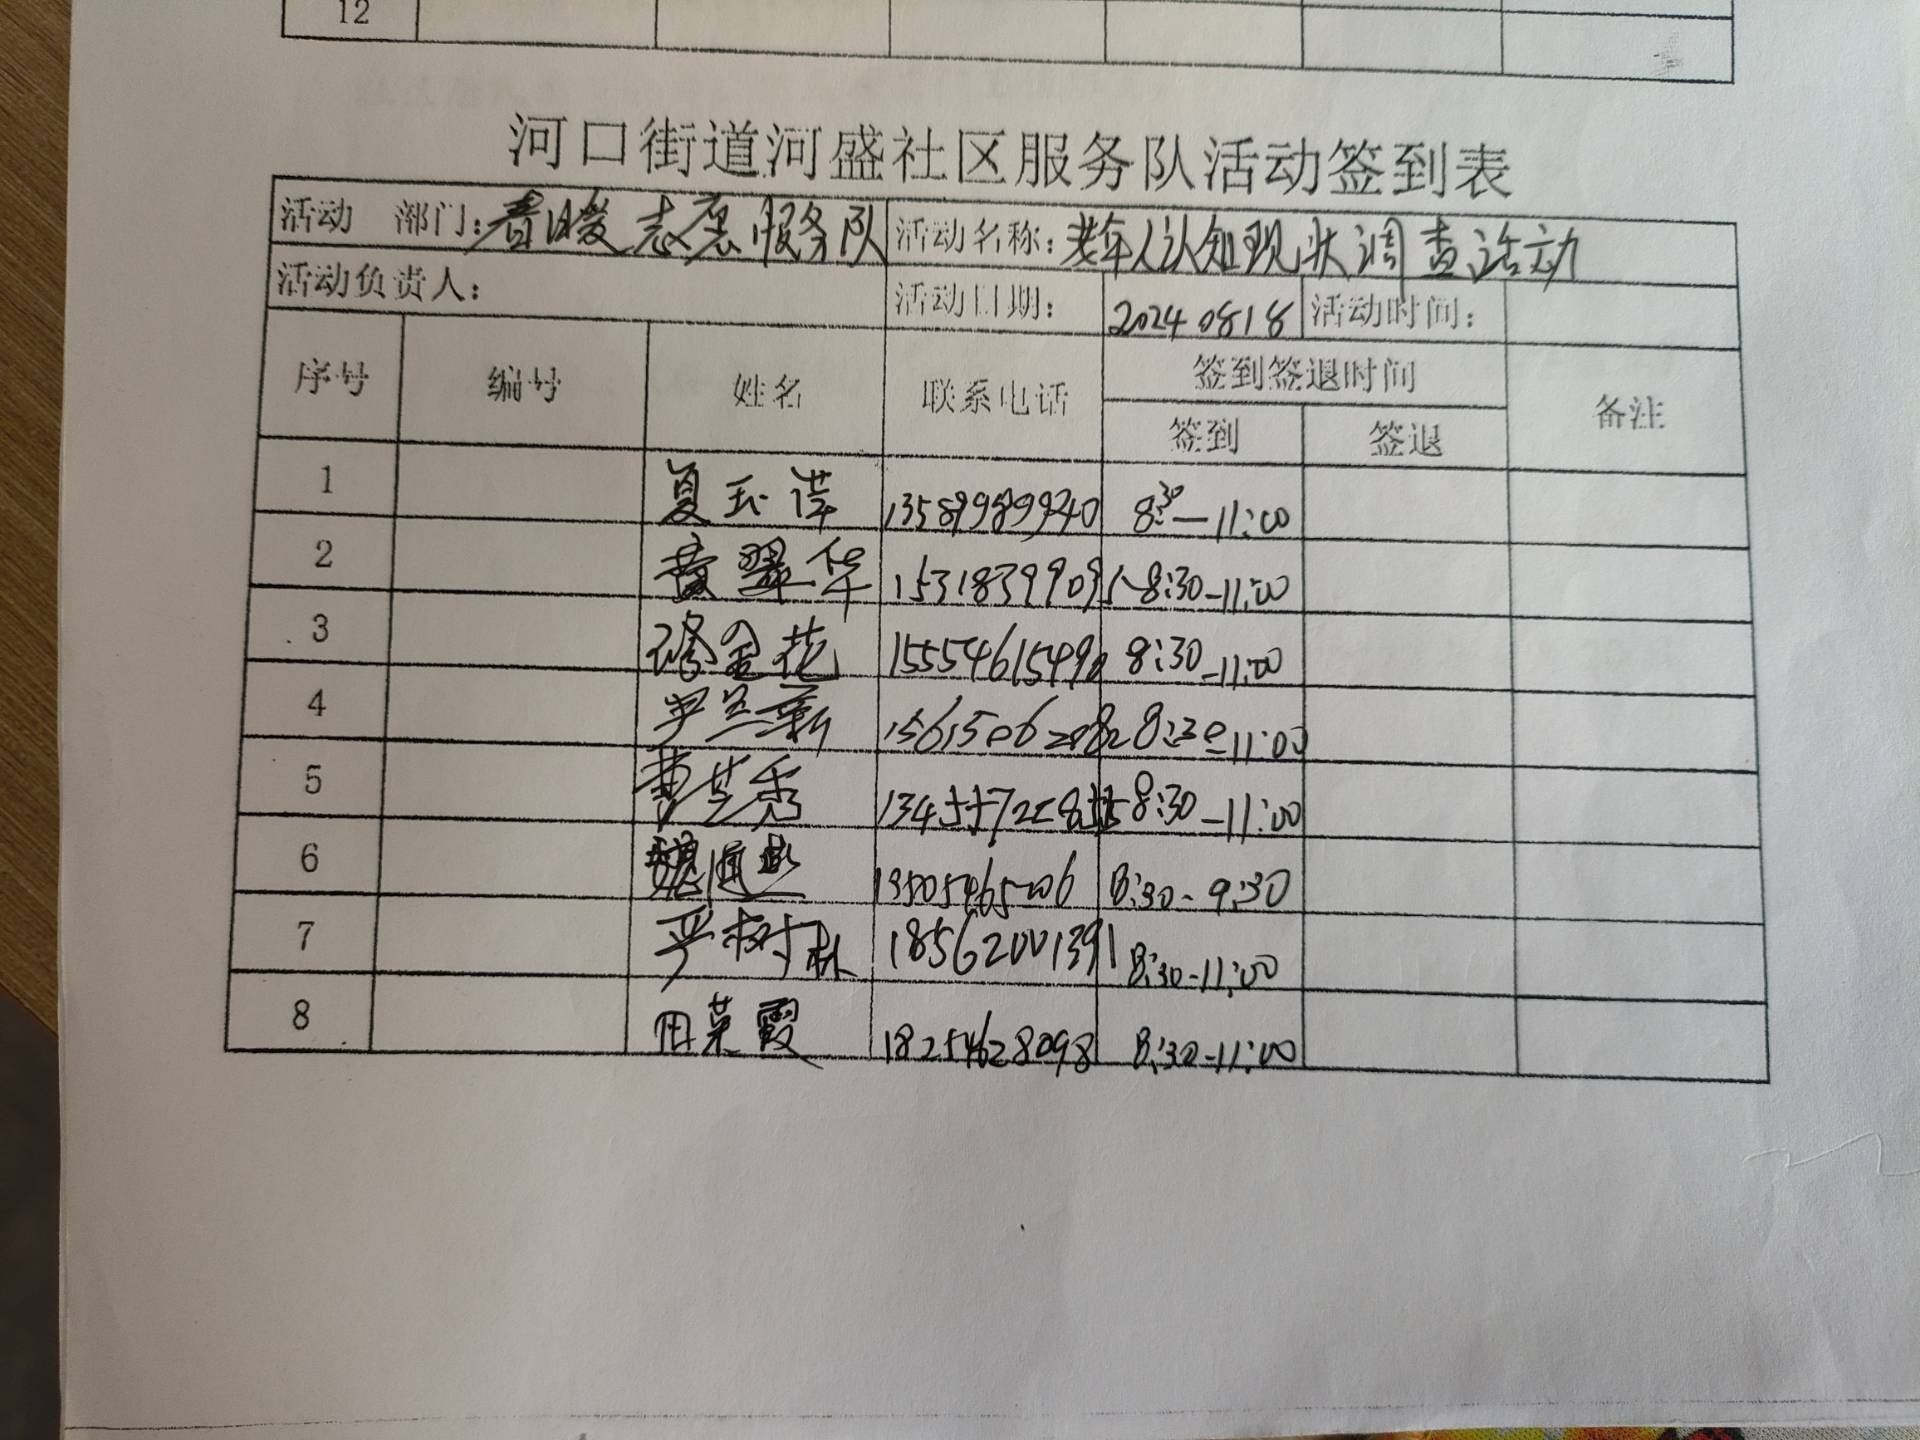 12
河口街道河盛社区服务队活动签到表
活动 部门：春暖志愿服务队 活动名称：老年人认知现状调查活动
活动负责人： 活动日期： 20240818 活动时间：
序号 编号 姓名 联系电话 签到签退时间 备注
签到 签退
1 夏玉萍 13589989940 8:30—11:00
2 黄翠华 15318399091 8:30-11:00
3 修金花 1555461549 8:30-11:00
4 尹兰新 15615062082 8:30-11:00
5 曹芝秀 8:30-11:00
6 魏 13505465006 8:30-9:30
7 严树林 18562001391 8:30-11:00
8 田荣霞 18254628098 8:30-11:00